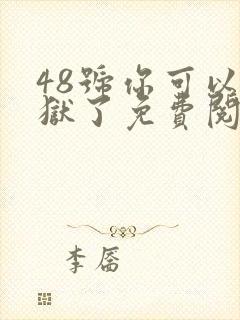 48號你可以
獄了免費閱
李屠